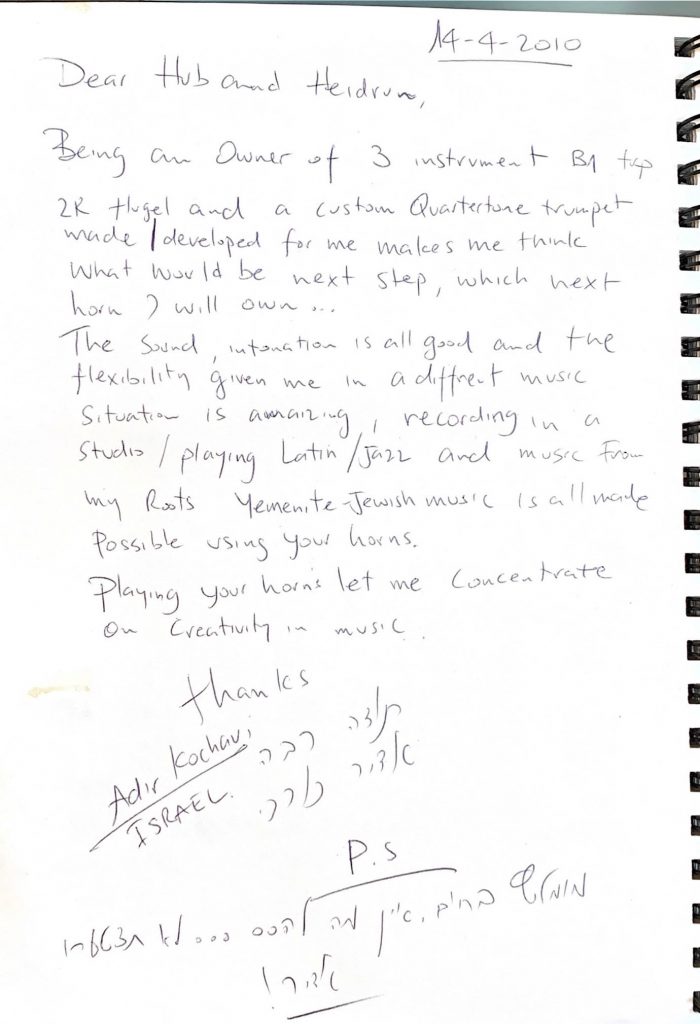 14-4-2010
Dear Hub and Heidrun,
Being an Owner of 3 instrument B1 trp
2K flugel and a custom Quartertone trumpet
made/developed for me makes me think
what would be next step, which next
horn I will own...
The Sound, intonation is all good and the
flexibility given me in a diffrent music
Situation is amaizing, recording in a
Studio/playing Latin/Jazz and music from
my Roots Yemenite-Jewish music is all made
Possible using your horns.
Playing your horns let me concentrate
On Creativity in music.
thanks
Adir Kochavi תודה רבה
ISRAEL. אדיר כוכבי.
P.S
מומלץ בחום, אין מה להסס ... לא תצטערו
אדיר!